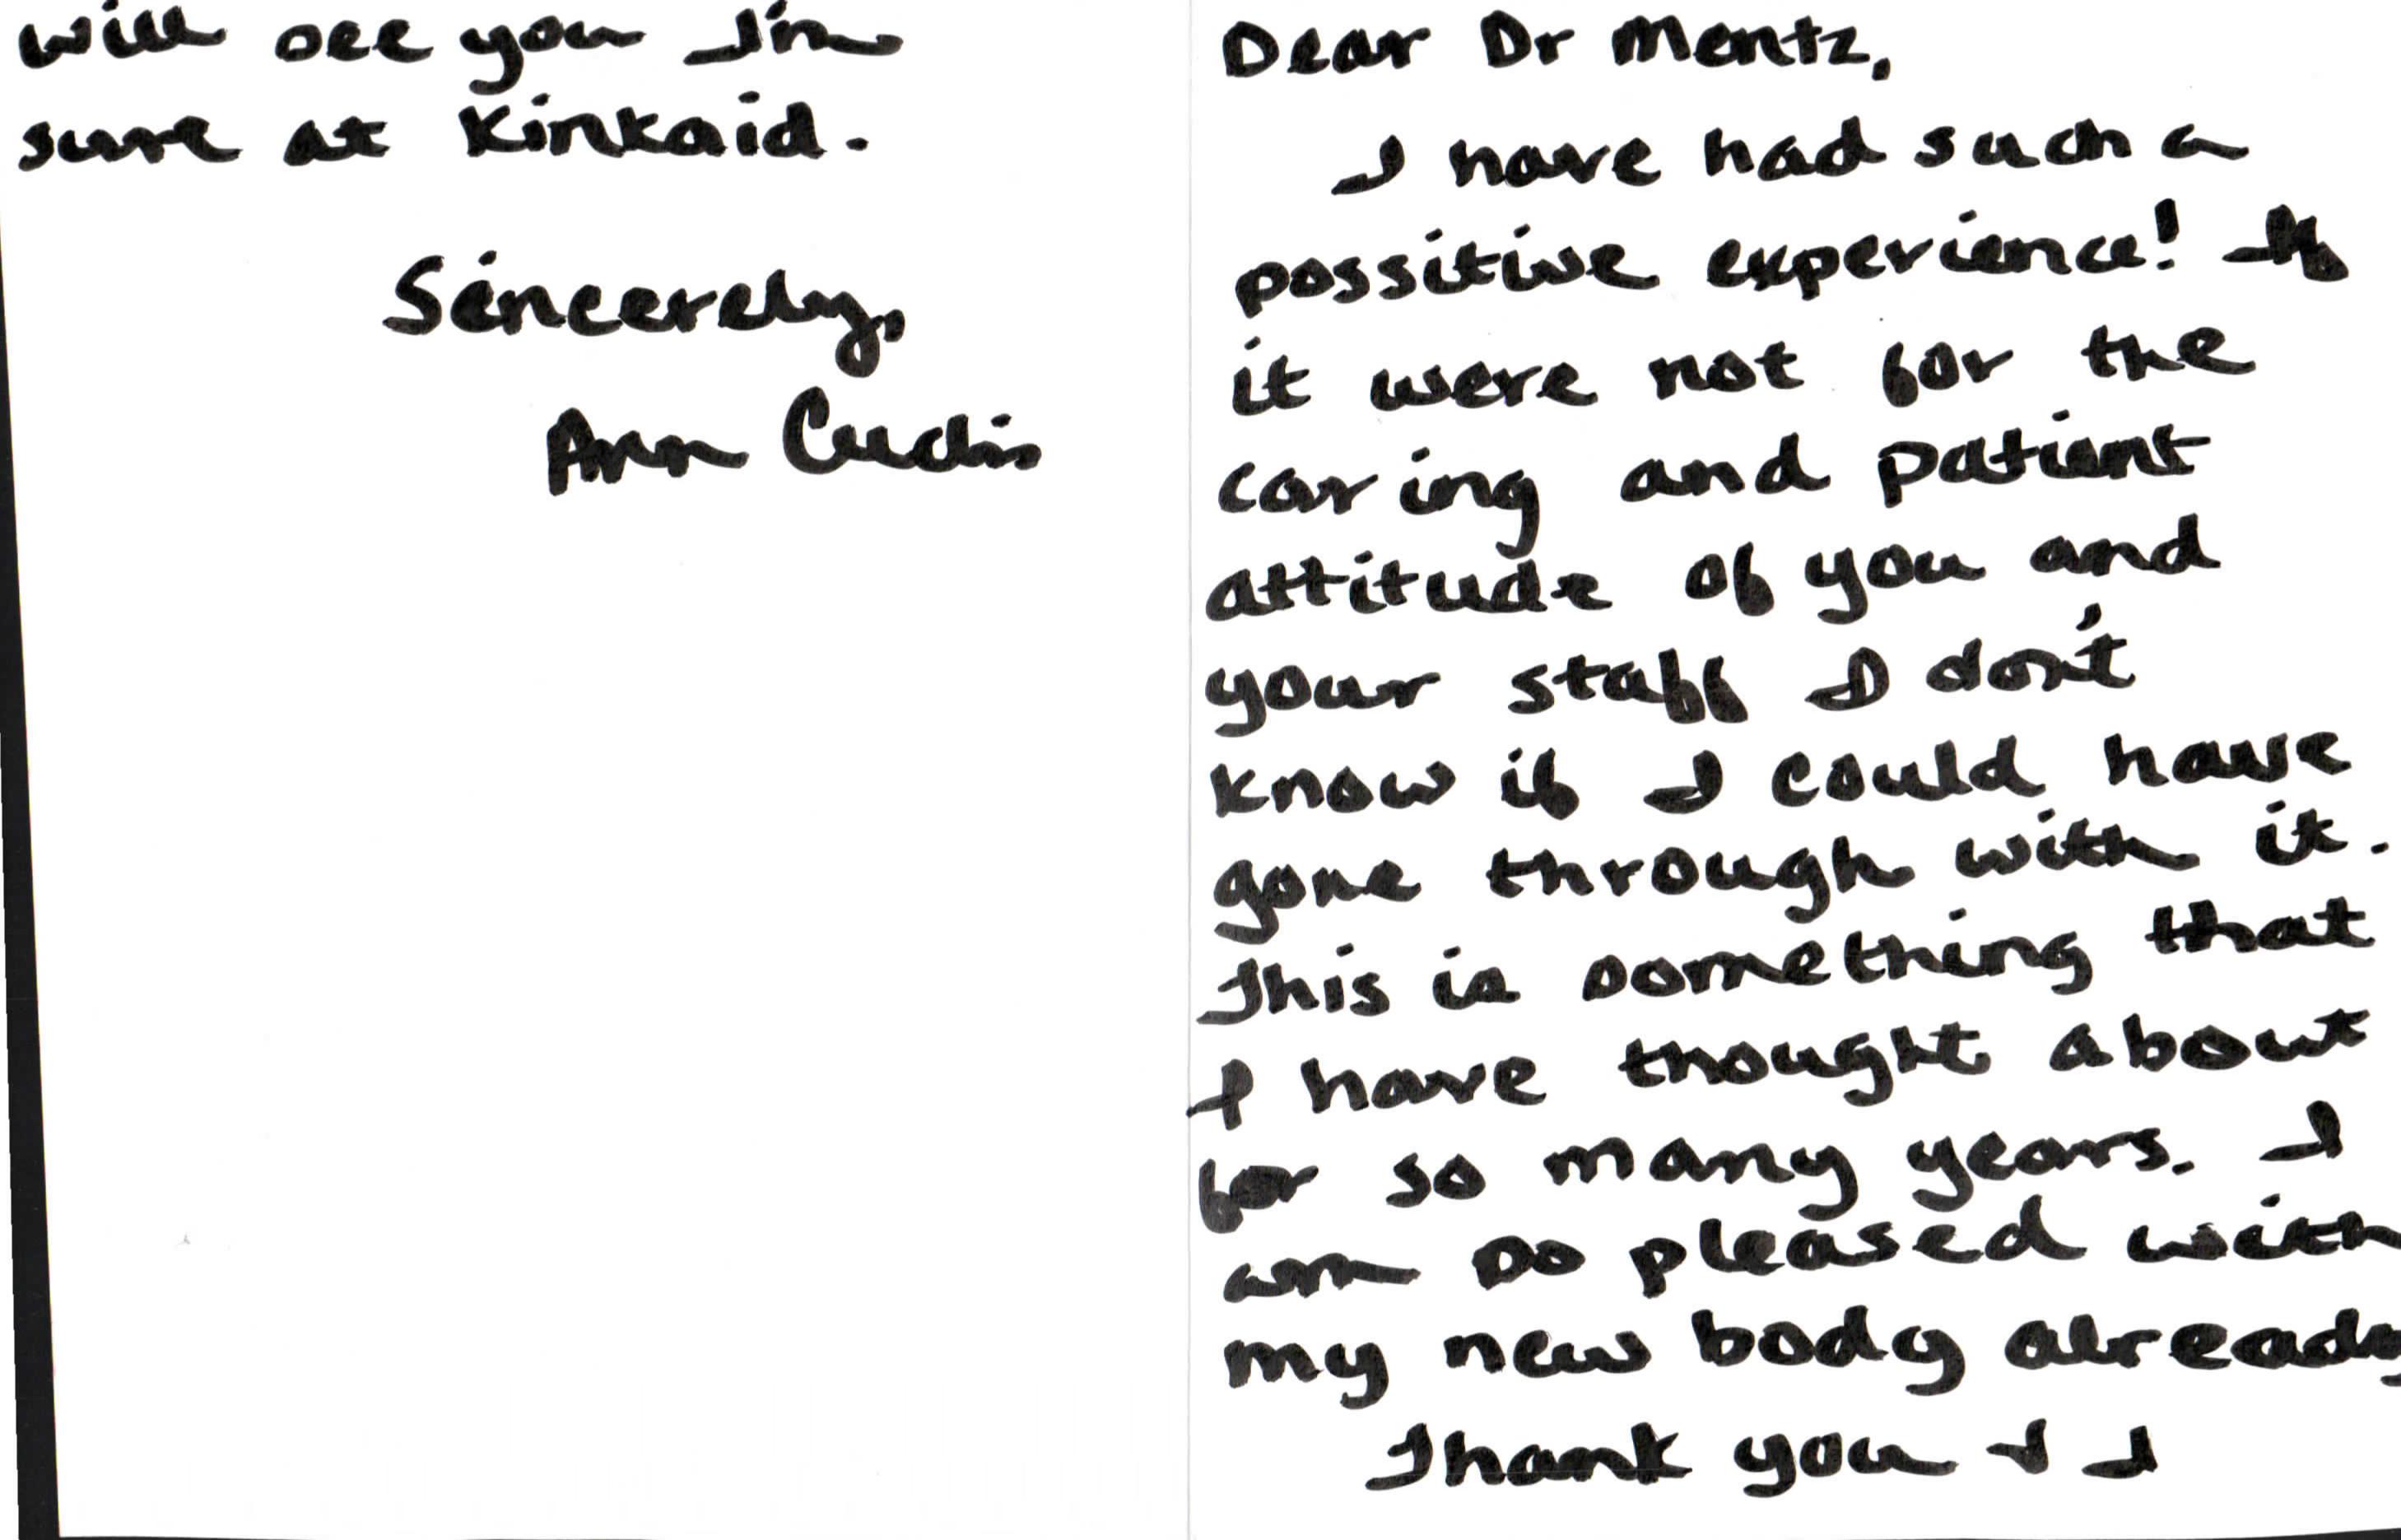 Dear Dr Mentz,
I have had such a
possitive experience! If
it were not for the
caring and patient
attitude of you and
your staff I don't
know if I could have
gone through with it.
This is something that
I have thought about
for so many years. I
am so pleased with
my new body already
Thank you & I
will see you I'm
sure at Kinkaid.
Sincerely,
Ann